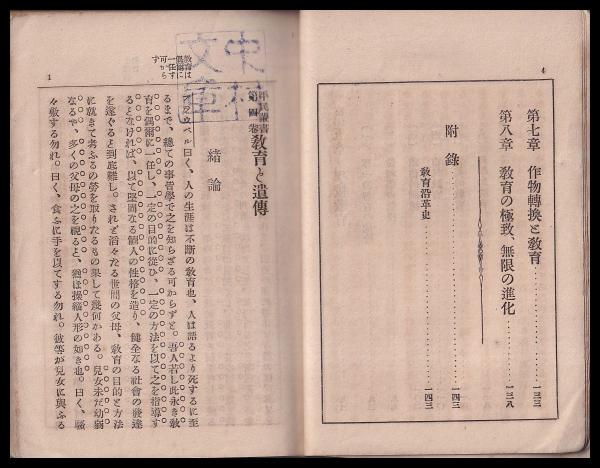 4
第七章 作物轉換と敎育 一三三
第八章 敎育の極致、無限の進化 一三八
附錄 一四三
敎育沿革史 一四三
中村
文庫
平民叢書
第四卷
敎育と遺傳
緖論
敎育は
偶爾に
一任す
可から
ず
曰く、人の生涯は不斷の敎育也、人は語るより死するに至
るまで、總ての事皆學で之を知らざる可からずと。吾人若し此永き敎
育を偶爾に一任し、一定の目的に從ひ、一定の方法を以て之を指導す
となければ、以て堅固なる個人の性格を造り、健全なる社會の發達
を遂ぐると到底難し。されど滔々たる世間の父母、敎育の目的と方法
に就きて考ふるの勞を取りたるもの果して幾何かある。兒女未だ幼弱
なるや、多くの父母の之を視ると、猶ほ操縱人形の如き也。曰く、騷
々敷する勿れ。曰く、食ふに手を以てする勿れ。彼等が兒女に與ふる
1